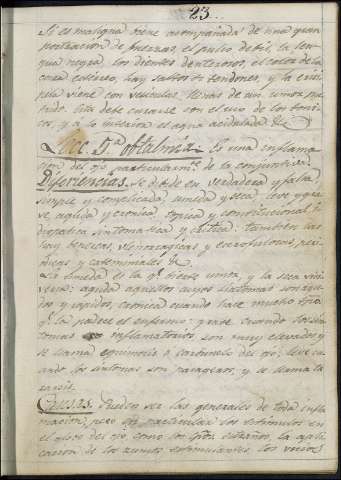 23.
Si es maligna viene acompañada de una gran
postracion de fuerzas, el pulso debil, la len-
gua negra, los dientes denterosos, el color de la
cara caliereo, hay saltos de tendones, y la erisi-
pela viene con vesiculas llenas de un umor pu-
trido. Esta debe curarse con el uso de los toni-
cos, y á lo interior el agua acidulada &c
Lecc. 5ª oftalmia. Es una inflama-
cion del ojo particularmte. de la conjuntiva
Diferiencias. Se divide en verdadera y falsa,
simple y complicada, umeda y seca, leve y gra-
ve, aguda y cronica, topica y constitucional,
idiopatica sintomatica y critica. tambien las
hay benereas, blenorragicas y escrofulosas, perio-
dicas y catameniales &c.
La umeda es la qe. tiene umor, y la seca vice
versa: aguda aquellos cuyos sintomas son agu-
dos y rapidos, cronica cuando hace mucho tpo.
qe. la padece el enfermo: grave cuando los sin-
tomas inflamatorios son muy elevados y
se llama equimosis o carbunclo del ojo; leve cu-
ando los sintomas son pasageros, y se llama ta-
raxis.
Causas. Pueden ser las generales de toda infla-
macion, pero en particular los estimulos en
el globo del ojo, como los cpos. estraños, la apli-
cacion de los zumos estimulantes, los vicios